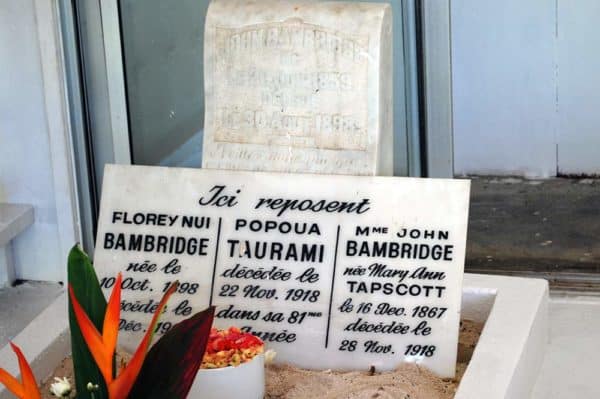 JOHN BAMBRIDGE
NÉ
1859
LE 30 AOUT
Ici reposent
FLOREY NUI
BAMBRIDGE
née le
10 Oct. 1898
décédée le
Déc.
POPOUA
TAURAMI
décédée le
22 Nov. 1918
dans sa 81ME
Année
MME JOHN
BAMBRIDGE
née Mary Ann
TAPSCOTT
le 16 Dec. 1867
décédée le
28 Nov. 1918